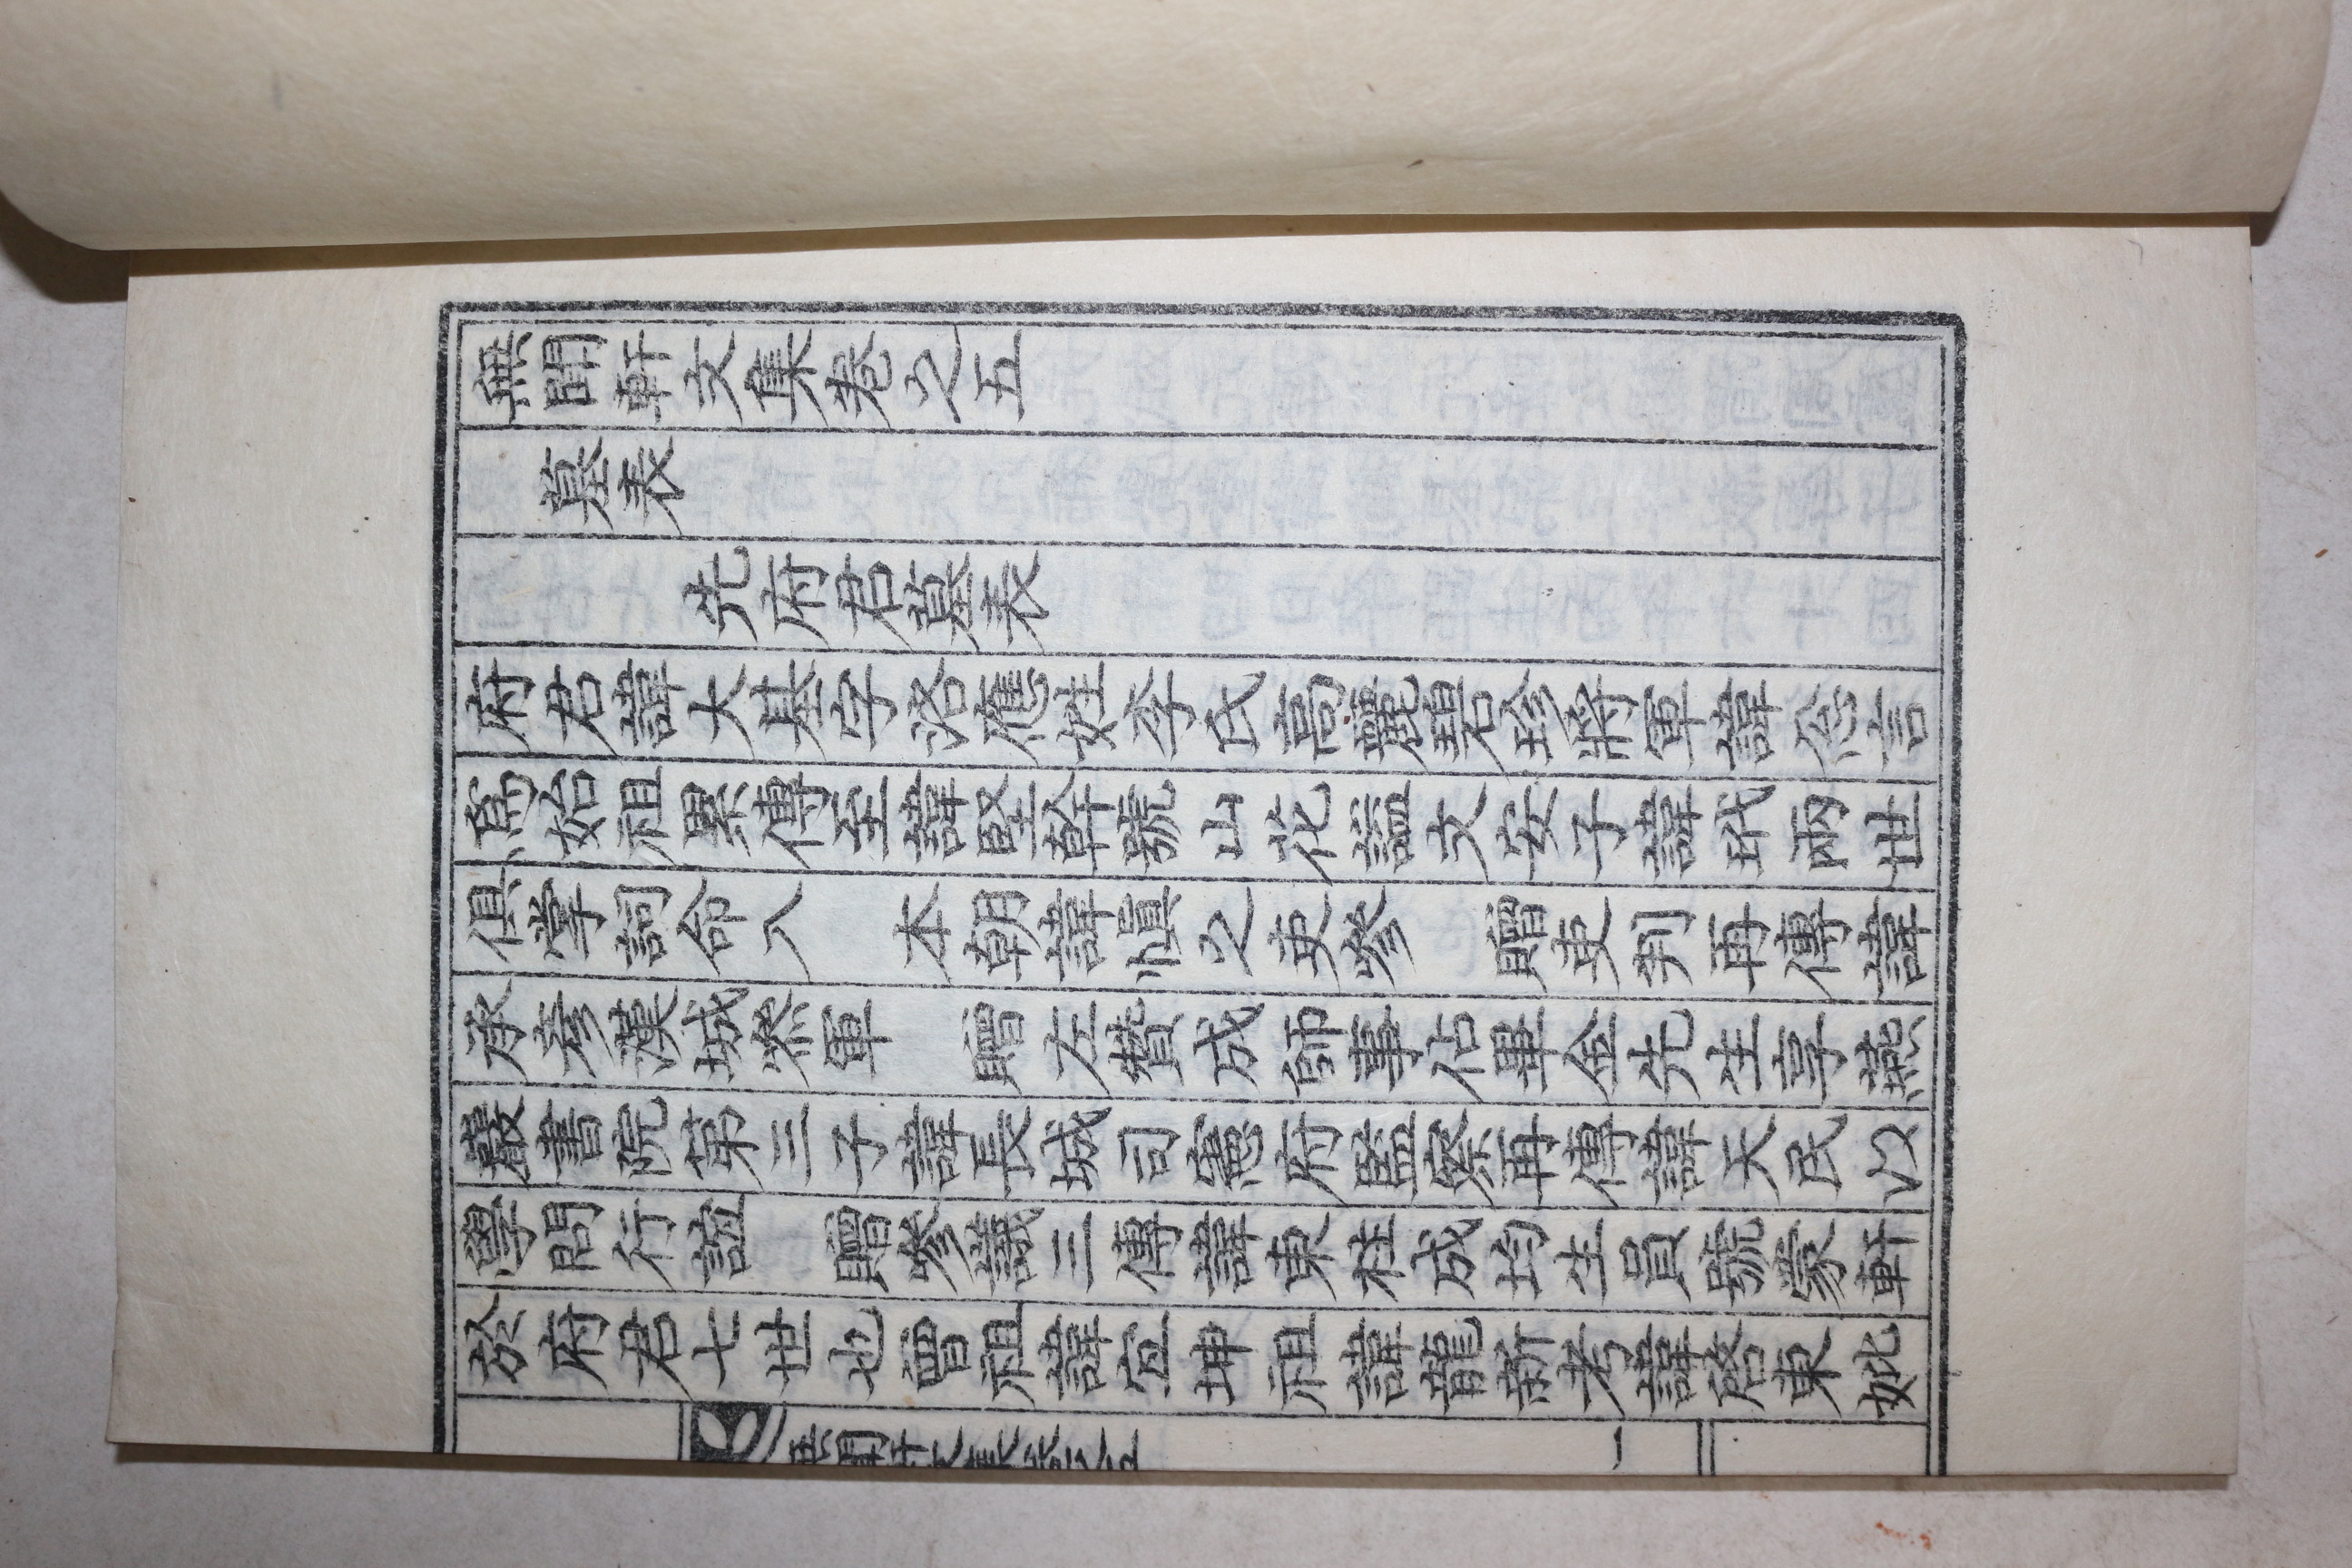 無聞軒文集卷之五
墓表
先府君墓表
府君諱大基字洛應姓李氏高麗碧珍將軍諱忩言
爲始祖累傳至諱堅幹號山花謚文安子諱玳兩世
俱掌詞命入 本朝諱愼之吏參 贈吏判再傳諱
承彦漢城叅軍 贈左贊成師事佔畢金先生享燕
巖書院第三子諱長城司憲府監察再傳諱天民以
學問行誼 贈參議三傳諱東柱成均生員號蒙軒
於府君七世也曾祖諱宜坤祖諱龍新考諱啓東妣
無聞軒文集卷之五 一